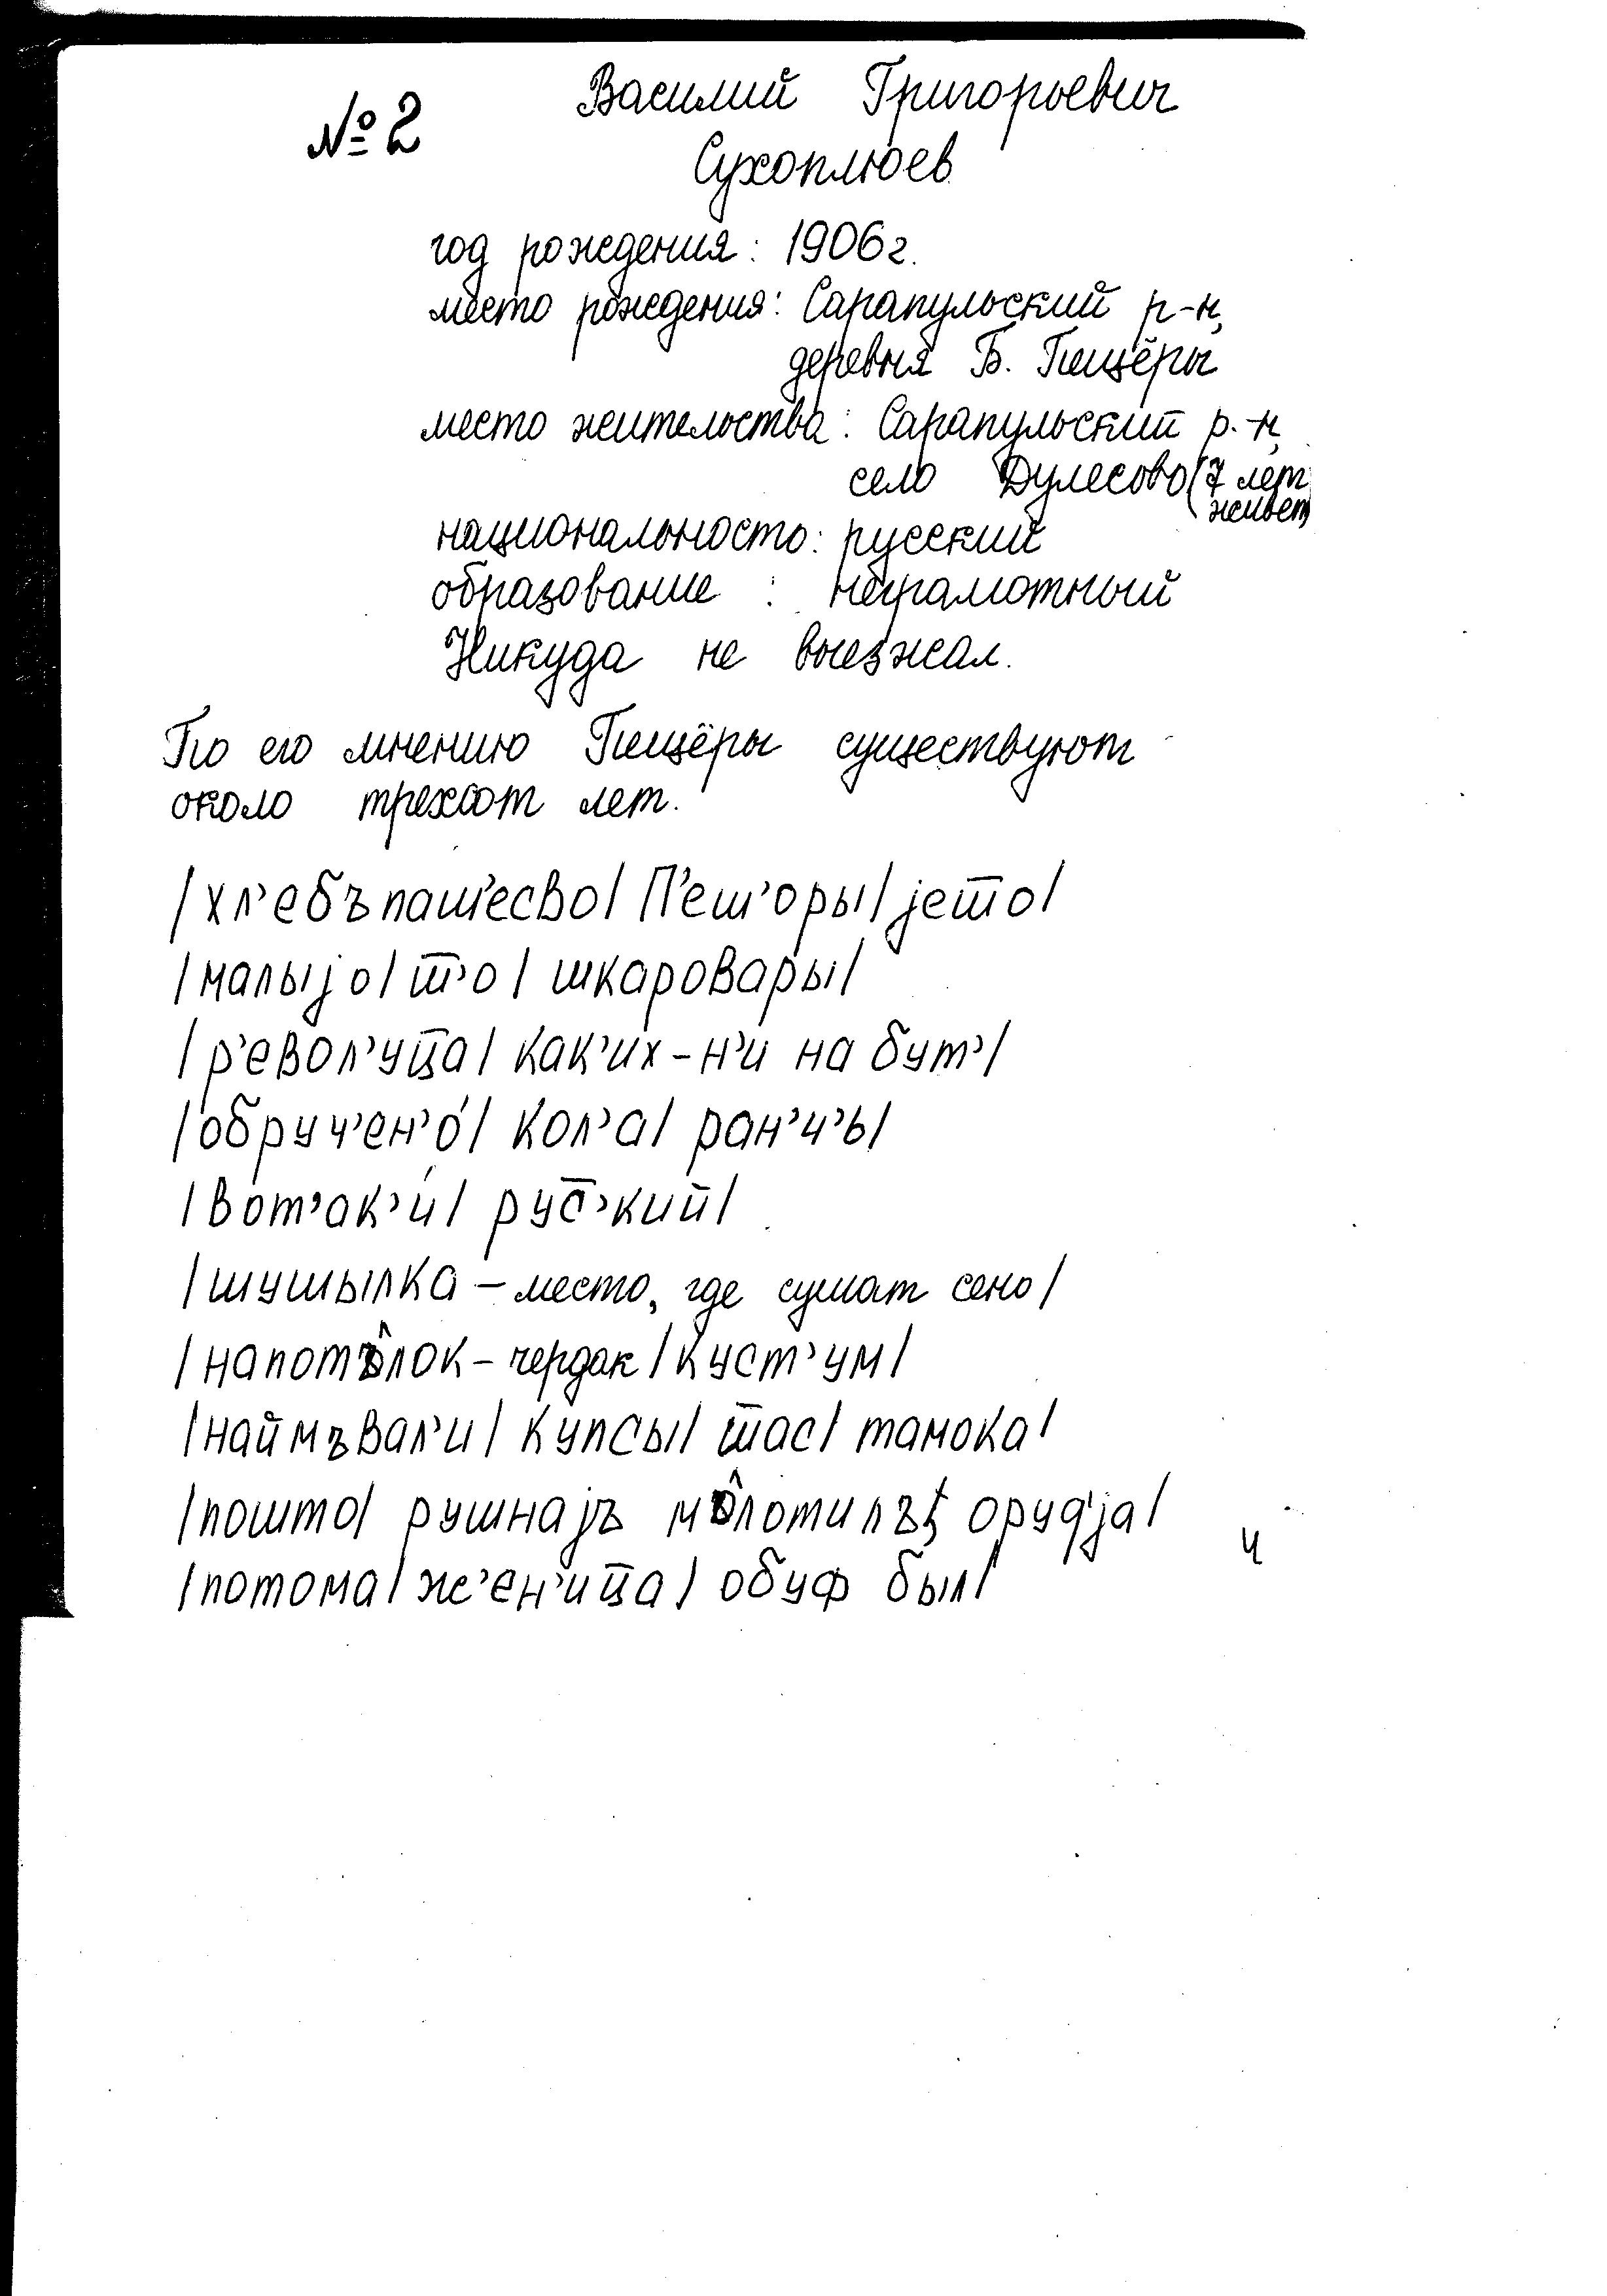 № 2
Василий Григорьевич
Сухоплюев
год рождения: 1906 г.
место рождения: Сарапульский р-н,
деревня Б. Пещёры
место жительства: Сарапульский р.-н,
село Дулесово (7 лет
живет)
национальность: русский
образование: неграмотный
Никуда не выезжал.
По его мнению Пещёры существуют
около трехсот лет.
/хл’ебъпаш’есво/ П’еш’оры/ jеш̅о/
/малыjо/ ш̅’о/ шкаровары/
/р’евол’уц̅а/ как’их-н’и на бут’/
/обруч’ен’о́/ кол’а/ ран’ч’ь/
/вот’ак’и/ рус̅’кий/
/шушылка – место, где сушат сено/
/напото̂лок – чердак/ куст’ум/
/наймъвал’и/ купсы/ ш̅ас/ тамока/
/пошто/ рушнаjъ мо̂лотилъ оруд’jа/
/потома/ ж’ен’иц̅а/ обуф был/
ч